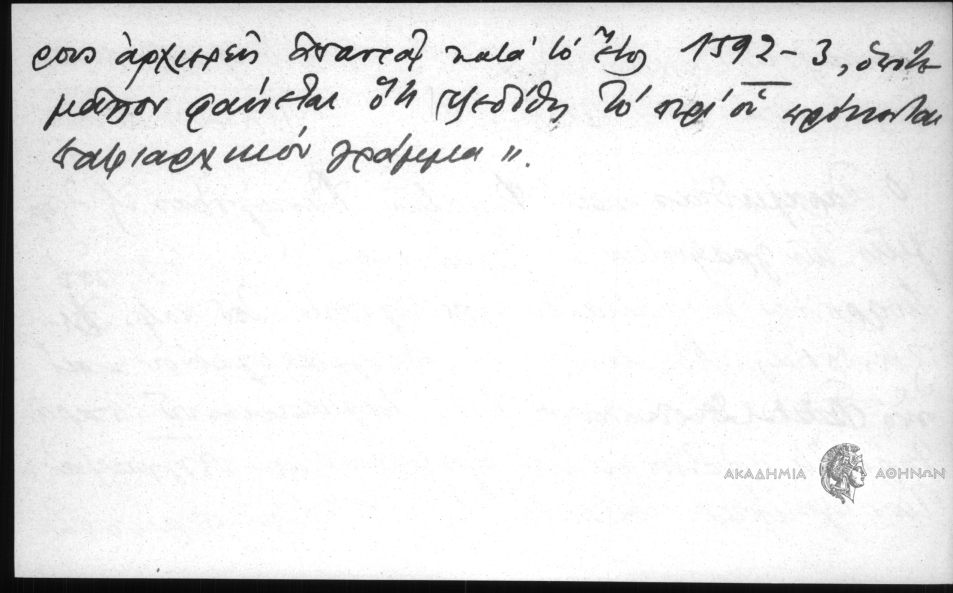 ρους ἀρχιερεῖς κατὰ τὸ ἔτος 1592-3, ὁπότε
μᾶλλον φαίνεται ὅτι ἐξεδόθη τὸ περὶ οὗ πρόκειται
πατριαρχικὸν γράμμα".
ΑΚΑΔΗΜΙΑ ΑΘΗΝΩΝ